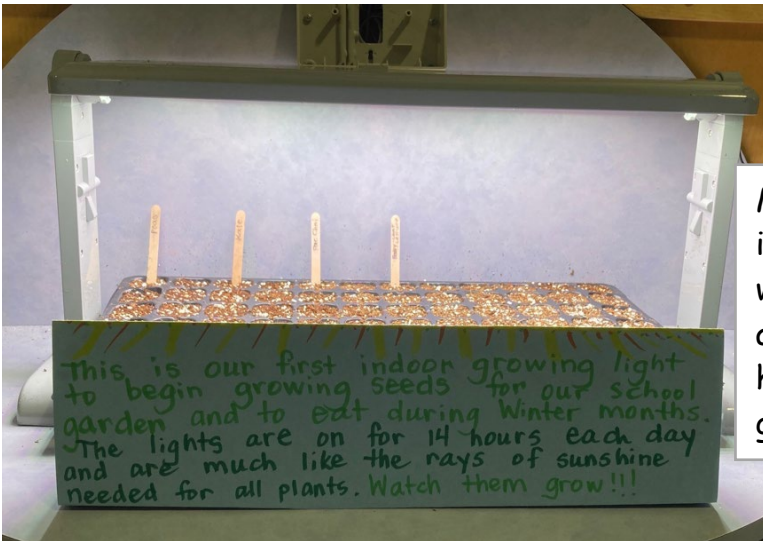 This is our first indoor growing light
to begin growing seeds for our school
garden and to eat during Winter months.
The lights are on for 14 hours each day
and are much like the rays of sunshine
needed for all plants. Watch them grow!!!